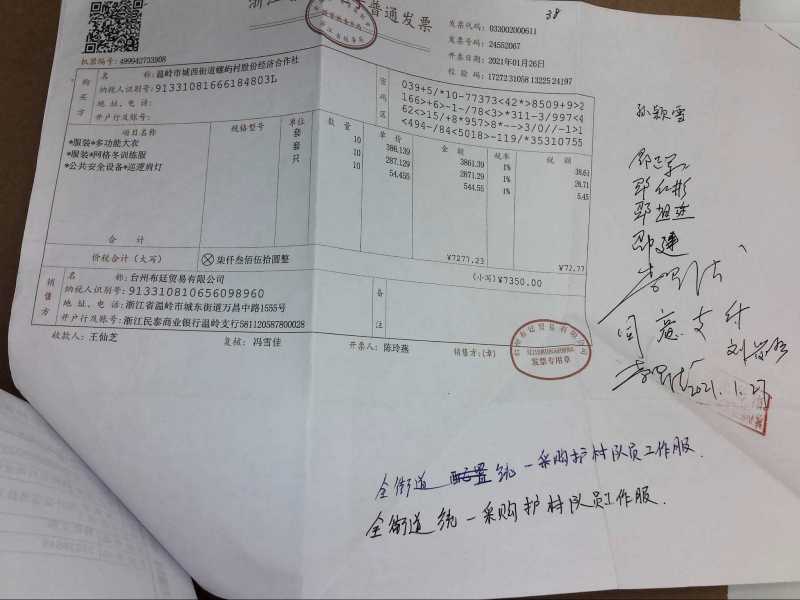 38
浙江 普通发票
发票代码: 033002000611
发票号码: 24552067
开票日期: 2021年01月26日
校 验 码: 17272 31058 13225 24197
机器编号: 499942733908
购买方
名 称: 温岭市城西街道螺屿村股份经济合作社
纳税人识别号: 91331081666184803L
地 址、电 话:
开户行及账号:
密码区
039+5/*10-77373<42*>8509+9>2
166>+6>-1-/78<3>*311-3/997<4
62<>15/+8*957>8*-->3/0//-1>1
<494-/84<5018>-119/*35310755
项目名称 规格型号 单位 数量 单价 金额 税率 税额
*服装*多功能大衣 套 10 386.139 3861.39 1% 38.61
*服装*网格冬训练服 套 10 287.129 2871.29 1% 28.71
*公共安全设备*巡逻肩灯 只 10 54.455 544.55 1% 5.45
合 计 ¥7277.23 ¥72.77
价税合计(大写) 柒仟叁佰伍拾圆整 (小写)¥7350.00
销售方
名 称: 台州布廷贸易有限公司
纳税人识别号: 913310810656098960
地 址、电 话: 浙江省温岭市城东街道万昌中路1555号
开户行及账号: 浙江民泰商业银行温岭支行581120587800028
备注
收款人: 王仙芝 复核: 冯雪佳 开票人: 陈玲燕 销售方:(章)
台州布廷贸易有限公司
913310810656098960
发票专用章
孙颖雪
邵仁彬
邵旭连
邵建
同意支付
2021.1.27
全街道 统一采购护村队员工作服.
全街道统一采购护村队员工作服.